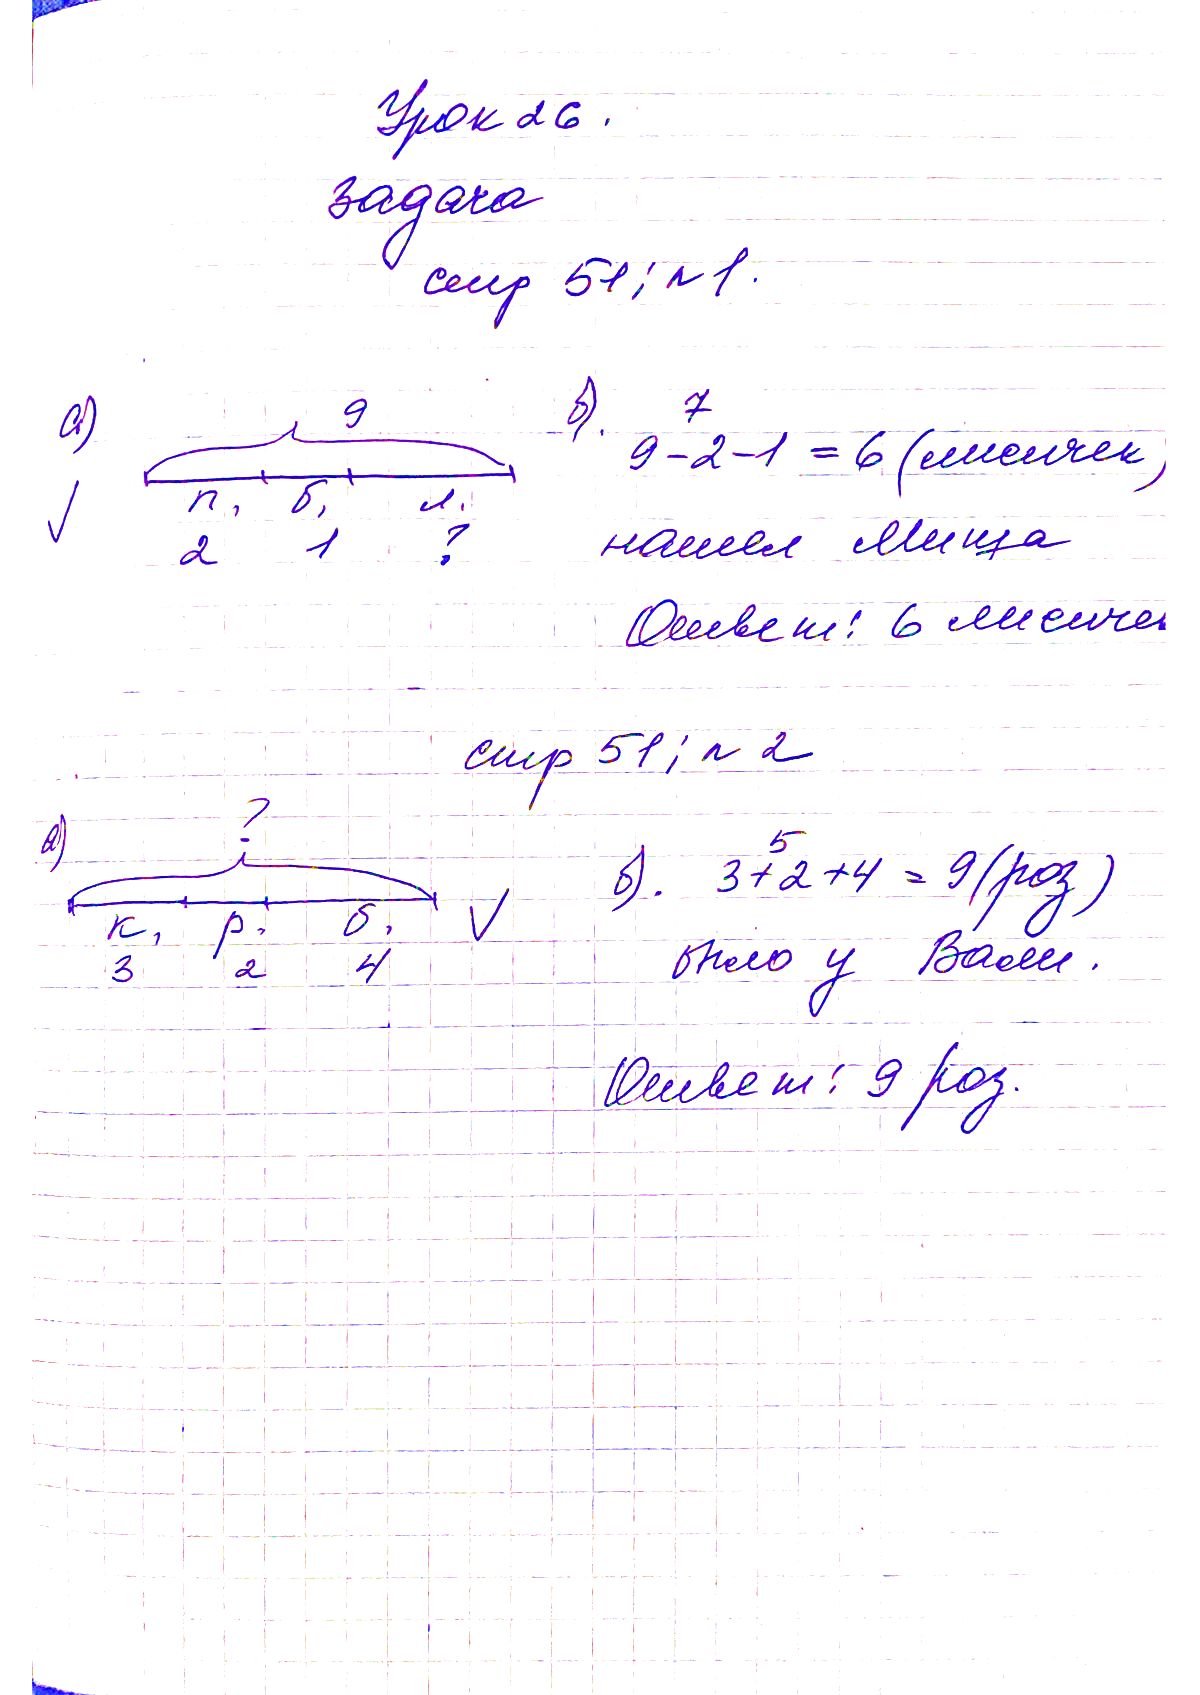 Урок 26.
Задача
стр 51; n 1.
а)
9
п, б, л.
2 1 ?
б).
7
9-2-1 = 6 (лисичек)
нашел Миша
Ответ: 6 лисичек
стр 51; n 2
а)
?
к, р, б,
3 2 4
б).
5
3+2+4 = 9 (роз)
было у Вали.
Ответ: 9 роз.